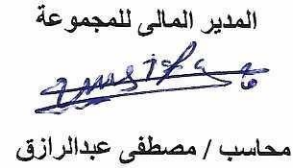 المدير المالى للمجموعة
محاسب / مصطفى عبدالرازق